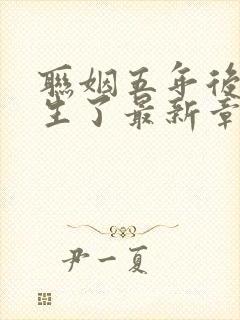 聯姻五年後
生了最新章
尹一夏